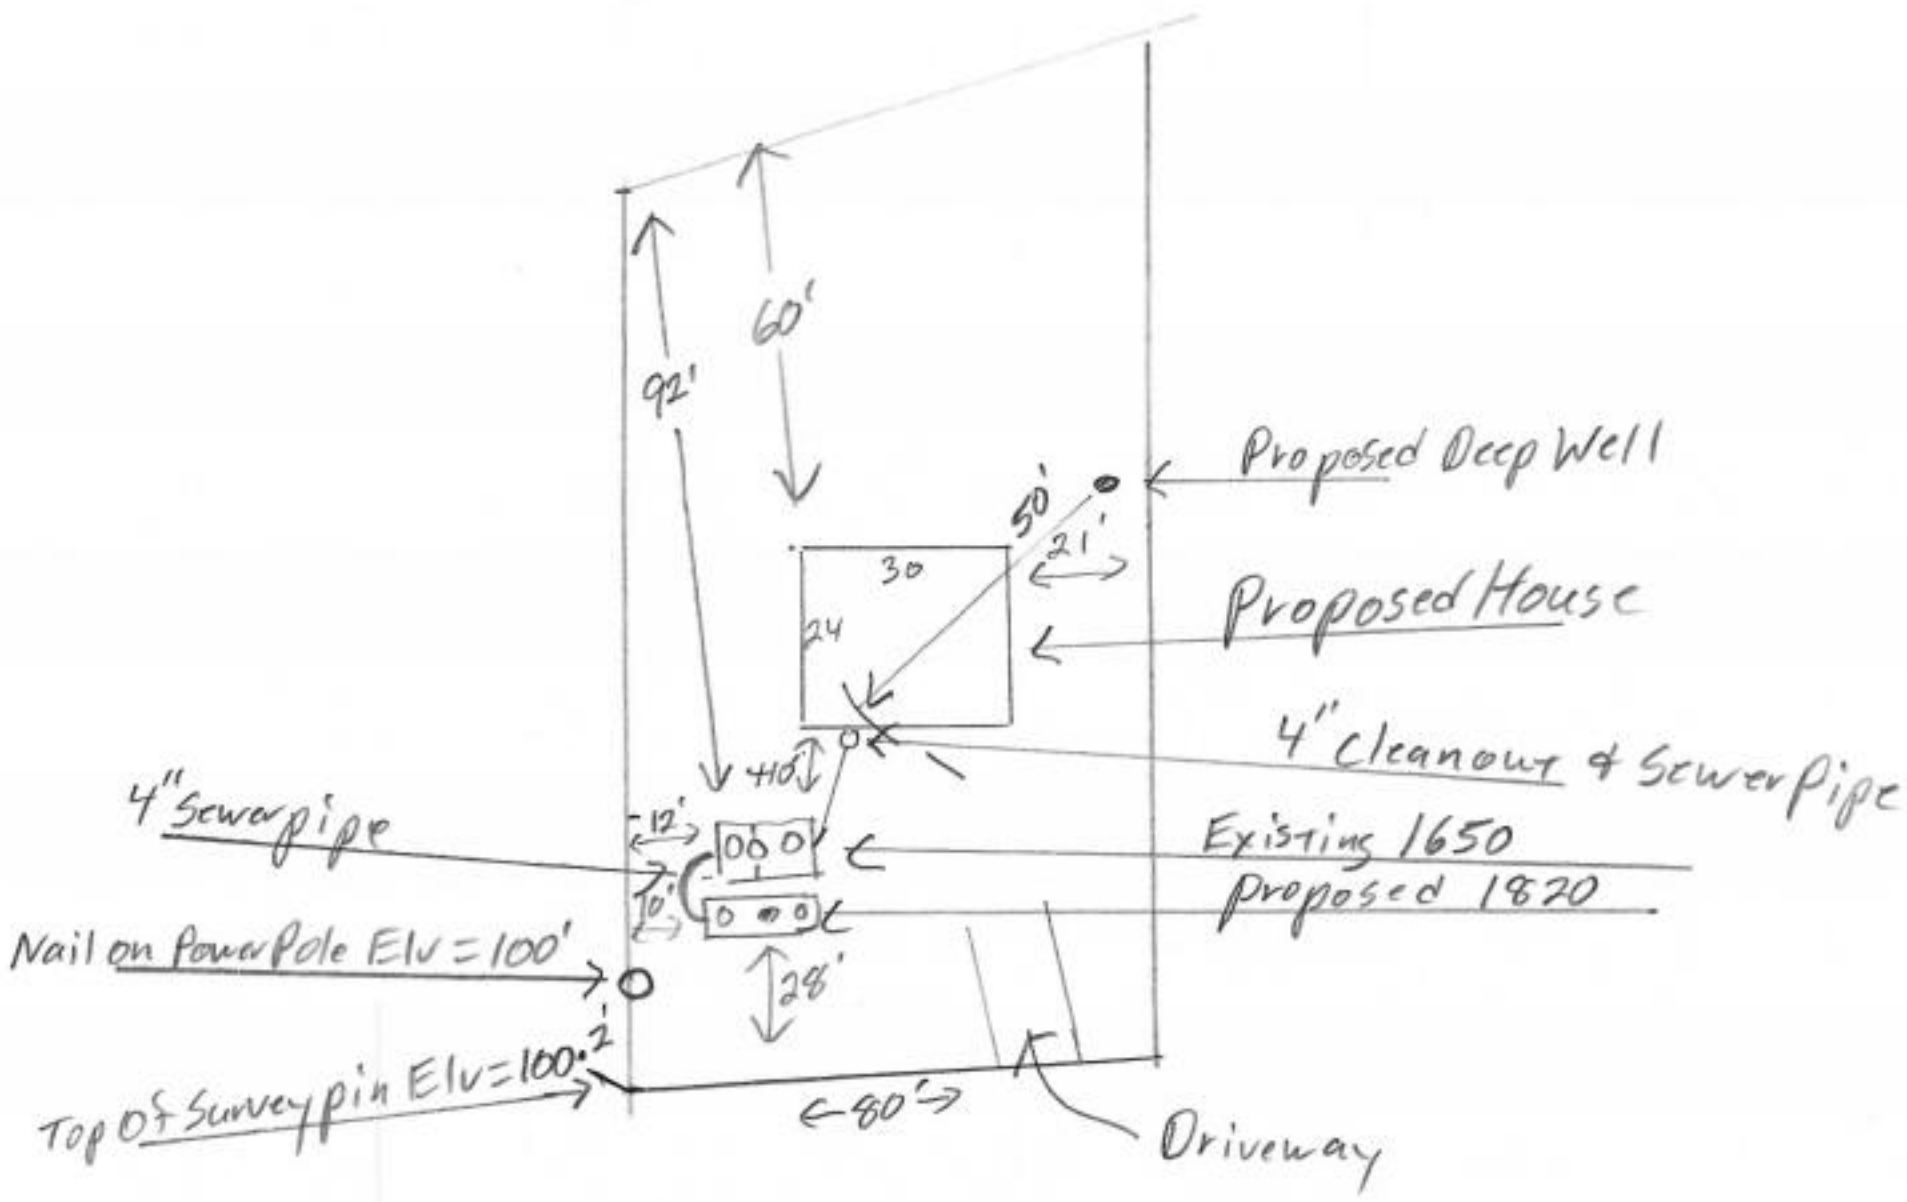 60'
92'
Proposed Deep Well
50'
21'
30
Proposed House
24
4" Cleanout & Sewer Pipe
+10'
4" Sewer pipe
12'
Existing 1650
Proposed 1820
10'
Nail on Power Pole Elv = 100'
28'
Top Of Survey pin Elv = 100.2'
80'
Driveway